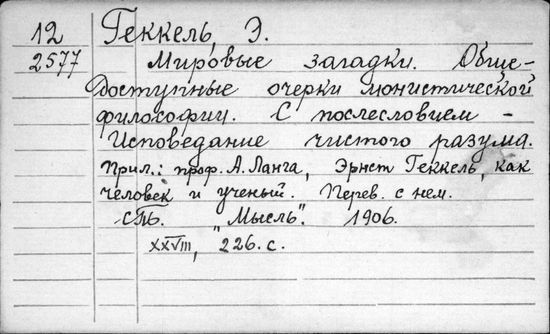 12 Геккель, Э.
2577 Мировые загадки. Обще-
доступные очерки монистической
философии. С послесловием -
Исповедание чистого разума.
Прил.: проф. А. Ланга, Эрнст Геккель, как
человек и ученый. Перев. с нем.
СПБ. "Мысль". 1906.
XXVIII, 226. с.